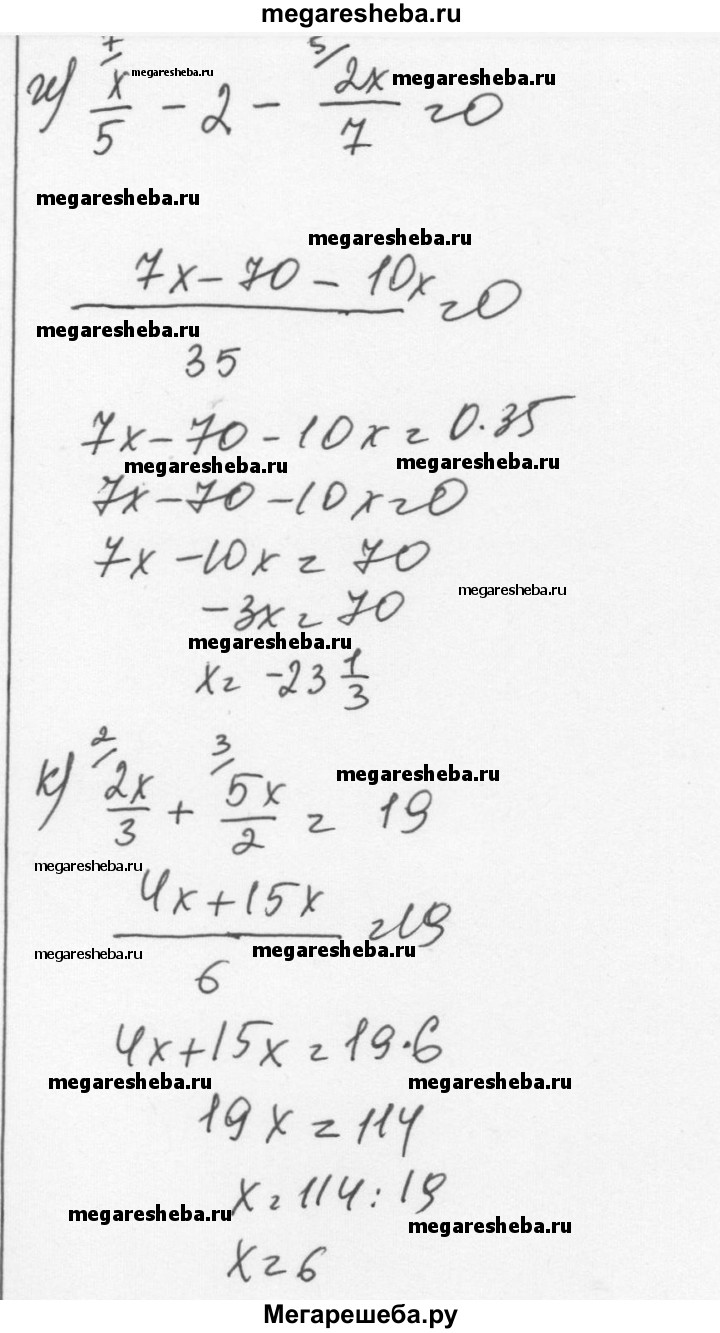 megaresheba.ru
7/ 5/
и) x/5 - 2 - 2x/7 = 0
megaresheba.ru megaresheba.ru
megaresheba.ru
megaresheba.ru
7x - 70 - 10x = 0
megaresheba.ru
35
7x - 70 - 10x = 0·35
megaresheba.ru megaresheba.ru
7x - 70 - 10x = 0
7x - 10x = 70
megaresheba.ru
-3x = 70
megaresheba.ru
x = -23 1/3
2/ 3/
к) 2x/3 + 5x/2 = 19
megaresheba.ru
megaresheba.ru
4x + 15x = 19
megaresheba.ru megaresheba.ru
6
4x + 15x = 19·6
megaresheba.ru megaresheba.ru
19x = 114
x = 114 : 19
megaresheba.ru megaresheba.ru
x = 6
Мегарешеба.ру